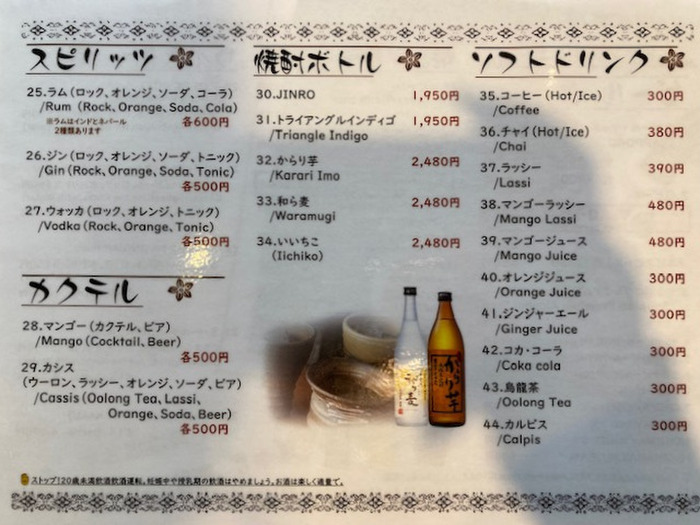 スピリッツ
25.ラム（ロック、オレンジ、ソーダ、コーラ）
/Rum（Rock、Orange、Soda、Cola）
※ラムはインドとネパール
2種類あります
各600円
26.ジン（ロック、オレンジ、ソーダ、トニック）
/Gin（Rock、Orange、Soda、Tonic）
各500円
27.ウォッカ（ロック、オレンジ、トニック）
/Vodka（Rock、Orange、Tonic）
各500円
カクテル
28.マンゴー（カクテル、ビア）
/Mango（Cocktail、Beer）
各500円
29.カシス
（ウーロン、ラッシー、オレンジ、ソーダ、ビア）
/Cassis（Oolong Tea、Lassi、
Orange、Soda、Beer）
各500円
焼酎ボトル
30.JINRO 1,950円
31.トライアングルインディゴ 1,950円
/Triangle Indigo
32.からり芋 2,480円
/Karari Imo
33.和ら麦 2,480円
/Waramugi
34.いいちこ 2,480円
（Iichiko）
からり芋
ソフトドリンク
35.コーヒー（Hot/Ice） 300円
/Coffee
36.チャイ（Hot/Ice） 380円
/Chai
37.ラッシー 390円
/Lassi
38.マンゴーラッシー 480円
/Mango Lassi
39.マンゴージュース 480円
/Mango Juice
40.オレンジジュース 300円
/Orange Juice
41.ジンジャーエール 300円
/Ginger Juice
42.コカ・コーラ 300円
/Coka cola
43.烏龍茶 300円
/Oolong Tea
44.カルピス 300円
/Calpis
ストップ！20歳未満飲酒飲酒運転。妊娠中や授乳期の飲酒はやめましょう。お酒は楽しく適量で。